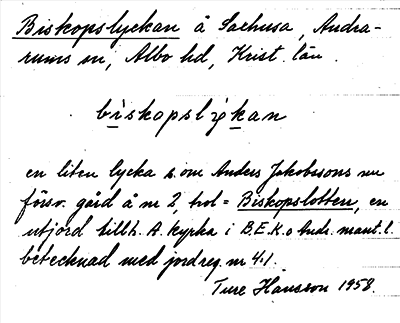 Biskopslyckan å Sachusa, Andra-
rums sn, Albo hd, Krist. län.
biskopslykan
en liten lycka som Anders Jakobssons nu
försv. gård å nr 2, trol = Biskopslotten, en
utjord tillh. A. kyrka i B.E.K. o Andr. mant.l.
betecknad med jordreg. nr 4:1.
Ture Hansson 1958.